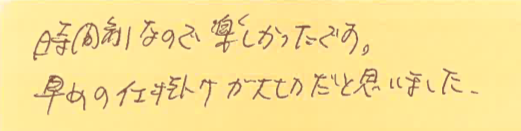 時間制なので楽しかったです。
早めの仕掛けが大切だと思いました。